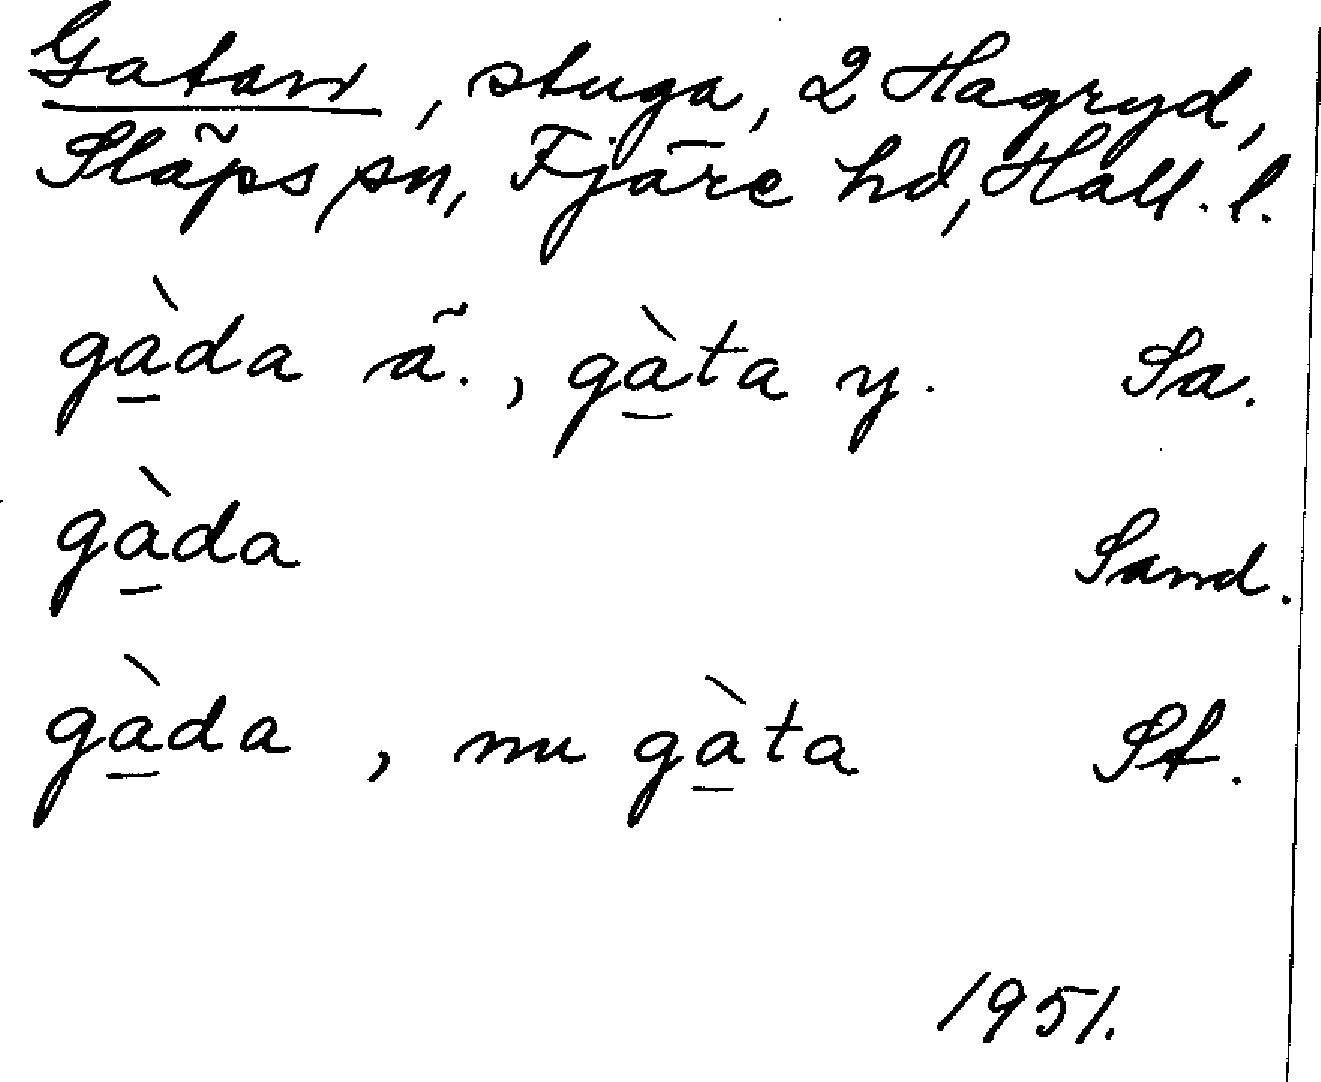 Gatan, stuga, 2 Hagryd,
Släps sn, Fjäre hd, Hall. l.
gàda ä., gàta y. Sa.
gàda Sand.
gàda, nu gàta St.
1951.